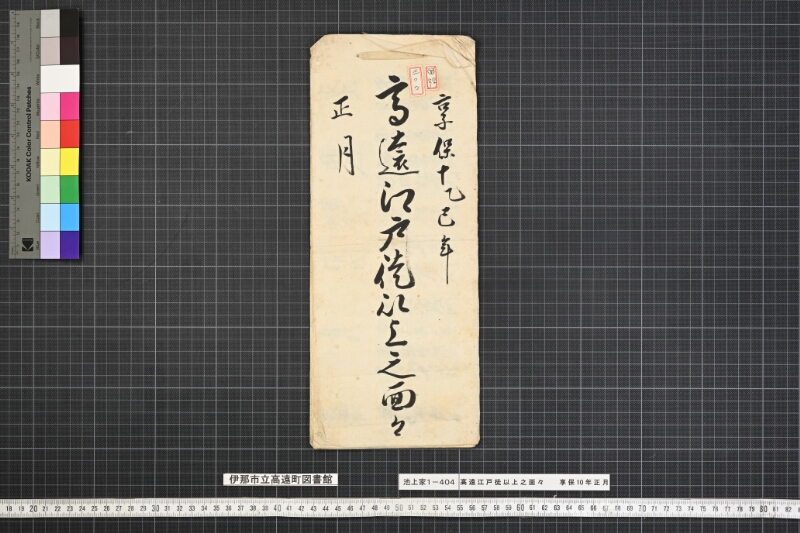 享保十乙巳年
高遠江戸徒以上之面々
正月
伊那市立高遠町図書館
池上家1-404 高遠江戸徒以上之面々 享保10年正月
KODAK Color Control Patches